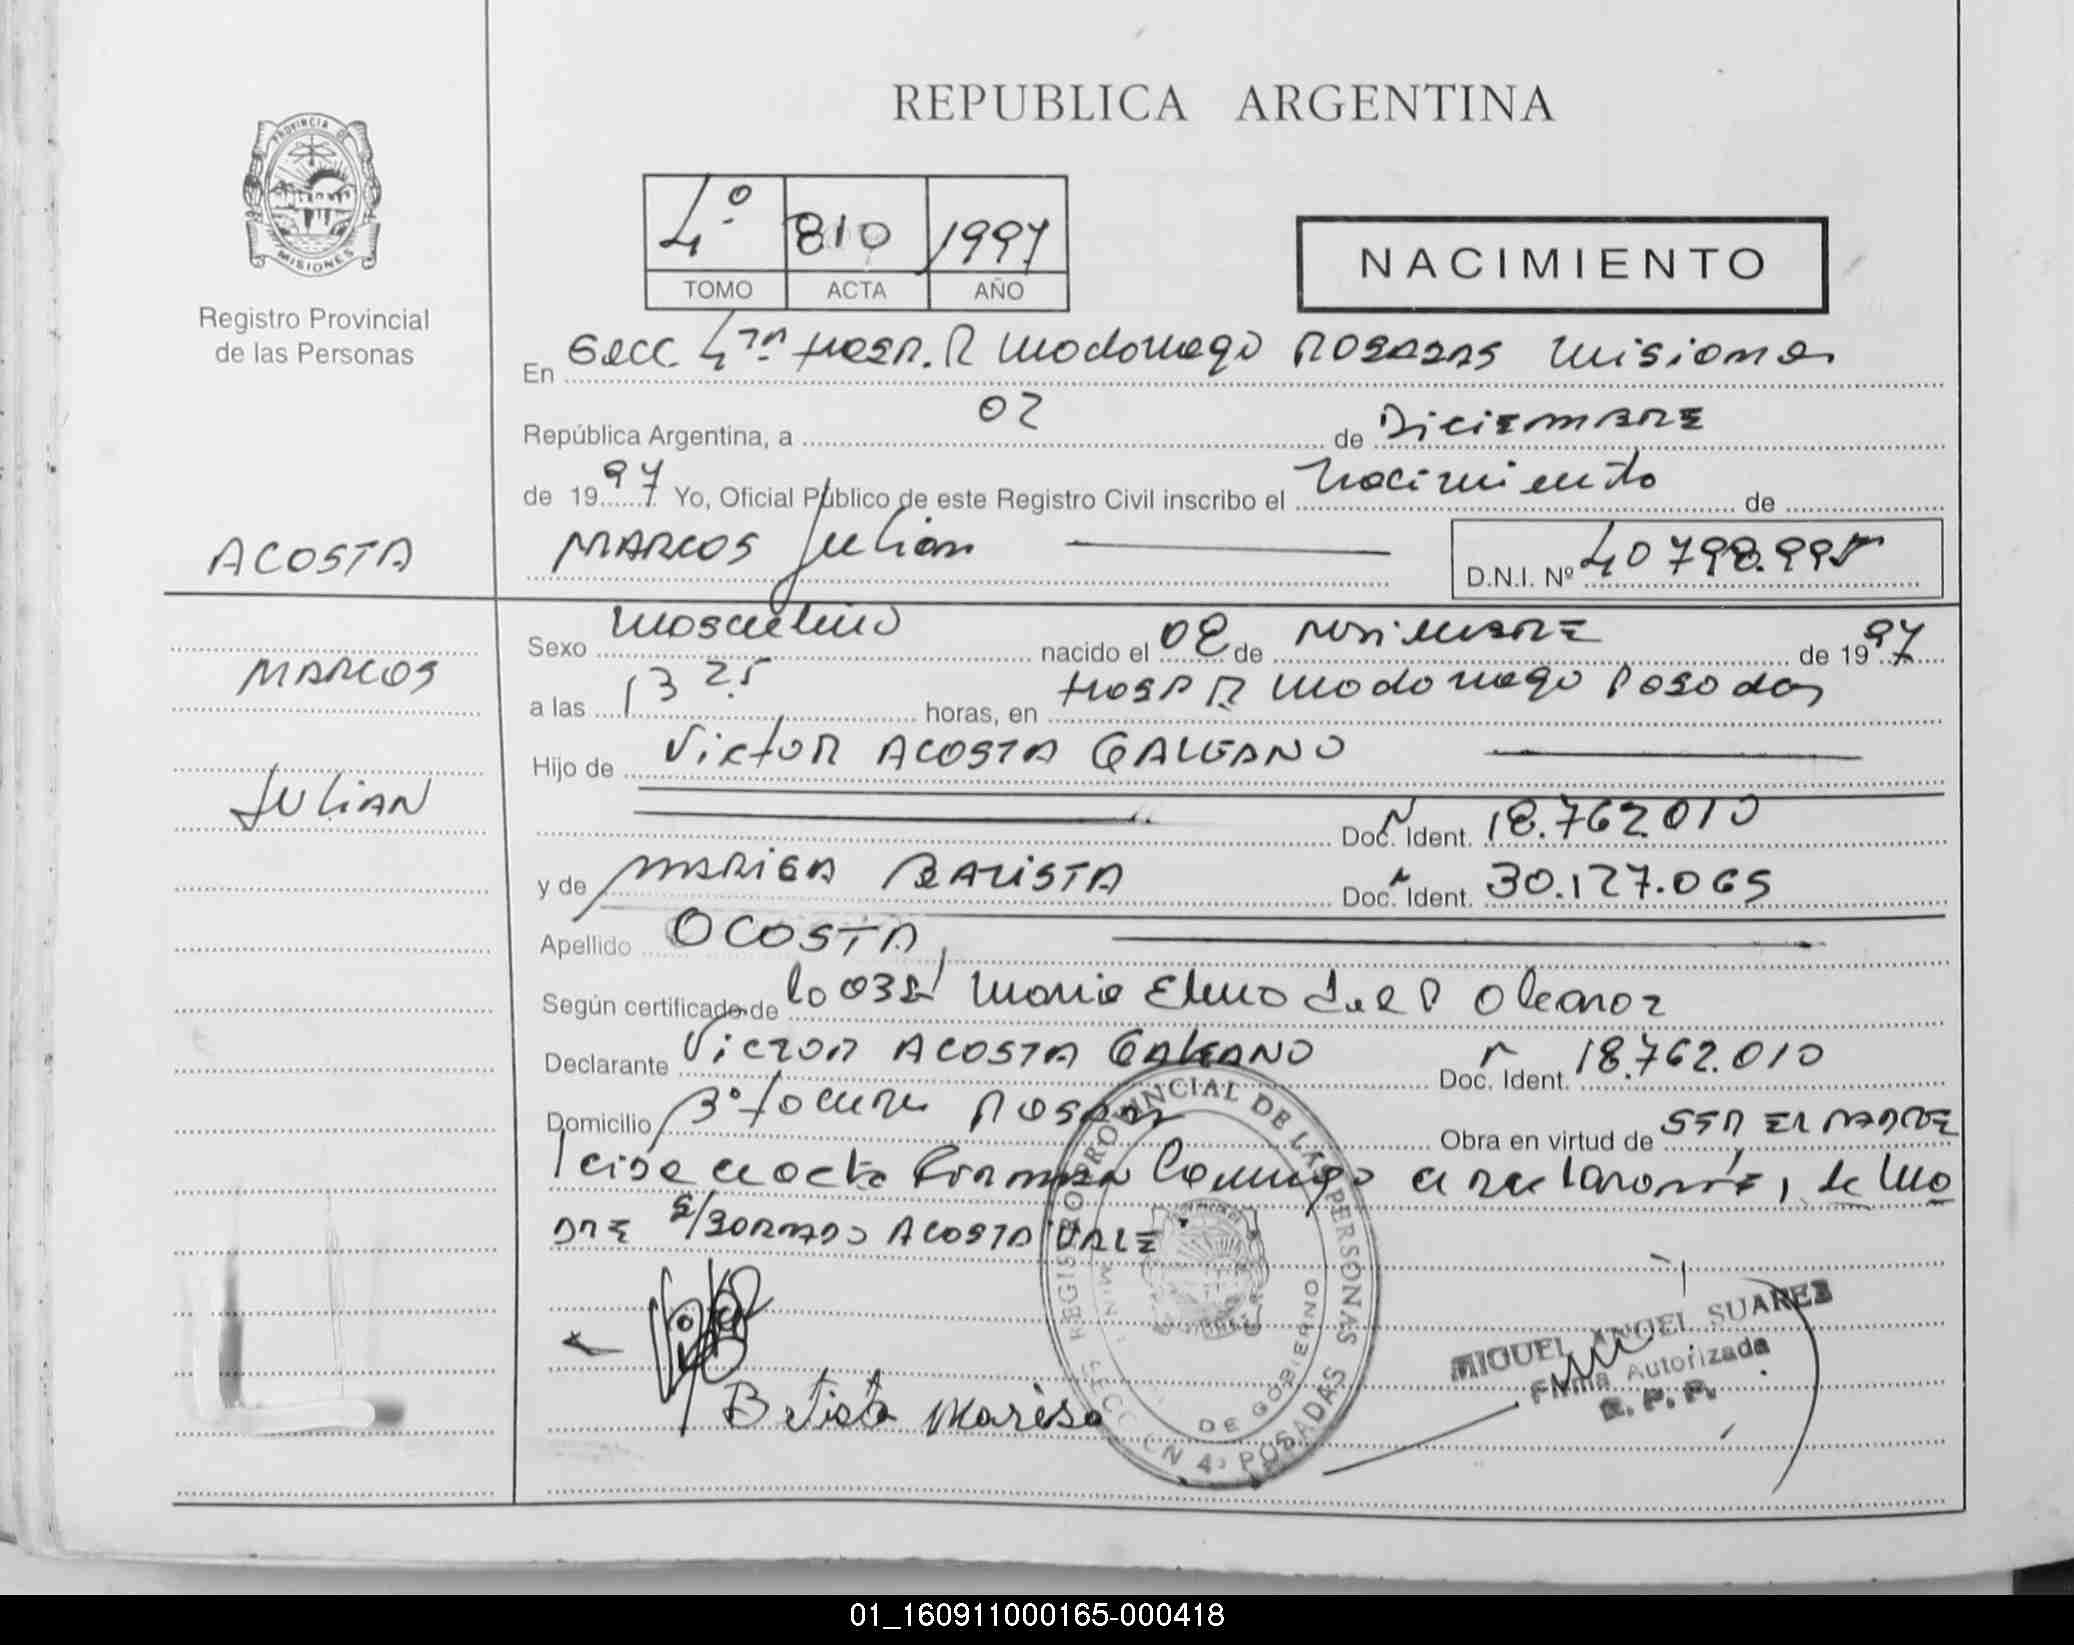 REPUBLICA ARGENTINA
PROVINCIA DE
MISIONES
Registro Provincial
de las Personas
4º 810 1997
TOMO ACTA AÑO
NACIMIENTO
En Secc 4ta Hosp. R Madariaga Posadas Misiones
República Argentina, a 02 de Diciembre
de 1997 Yo, Oficial Público de este Registro Civil inscribo el Nacimiento de
ACOSTA
MARCOS Julian
D.N.I. Nº 40798.995
Sexo Masculino nacido el 08 de Noviembre de 1997
MARCOS
a las 13 25 horas, en Hosp R Madariaga Posadas
Hijo de Victor ACOSTA GALEANO
JULIAN
Doc. Ident. 18.762.010
y de MARISA BATISTA Doc. Ident. 30.127.065
Apellido ACOSTA
Según certificado de la Obst Maria Elena del P
Declarante Victor ACOSTA GALEANO Doc. Ident. 18.762.010
Domicilio Bº Posadas Obra en virtud de SER EL PADRE
Leida el acta Firman Conmigo el declarante, la Ma
DRE S/BORRADO ACOSTA VALE
Batista Marisa
REGISTRO PROVINCIAL DE LAS PERSONAS
DE GOBIERNO
SECCION 4ª POSADAS
MIGUEL ANGEL SUAREZ
Firma Autorizada
R. P. P.
01_160911000165-000418